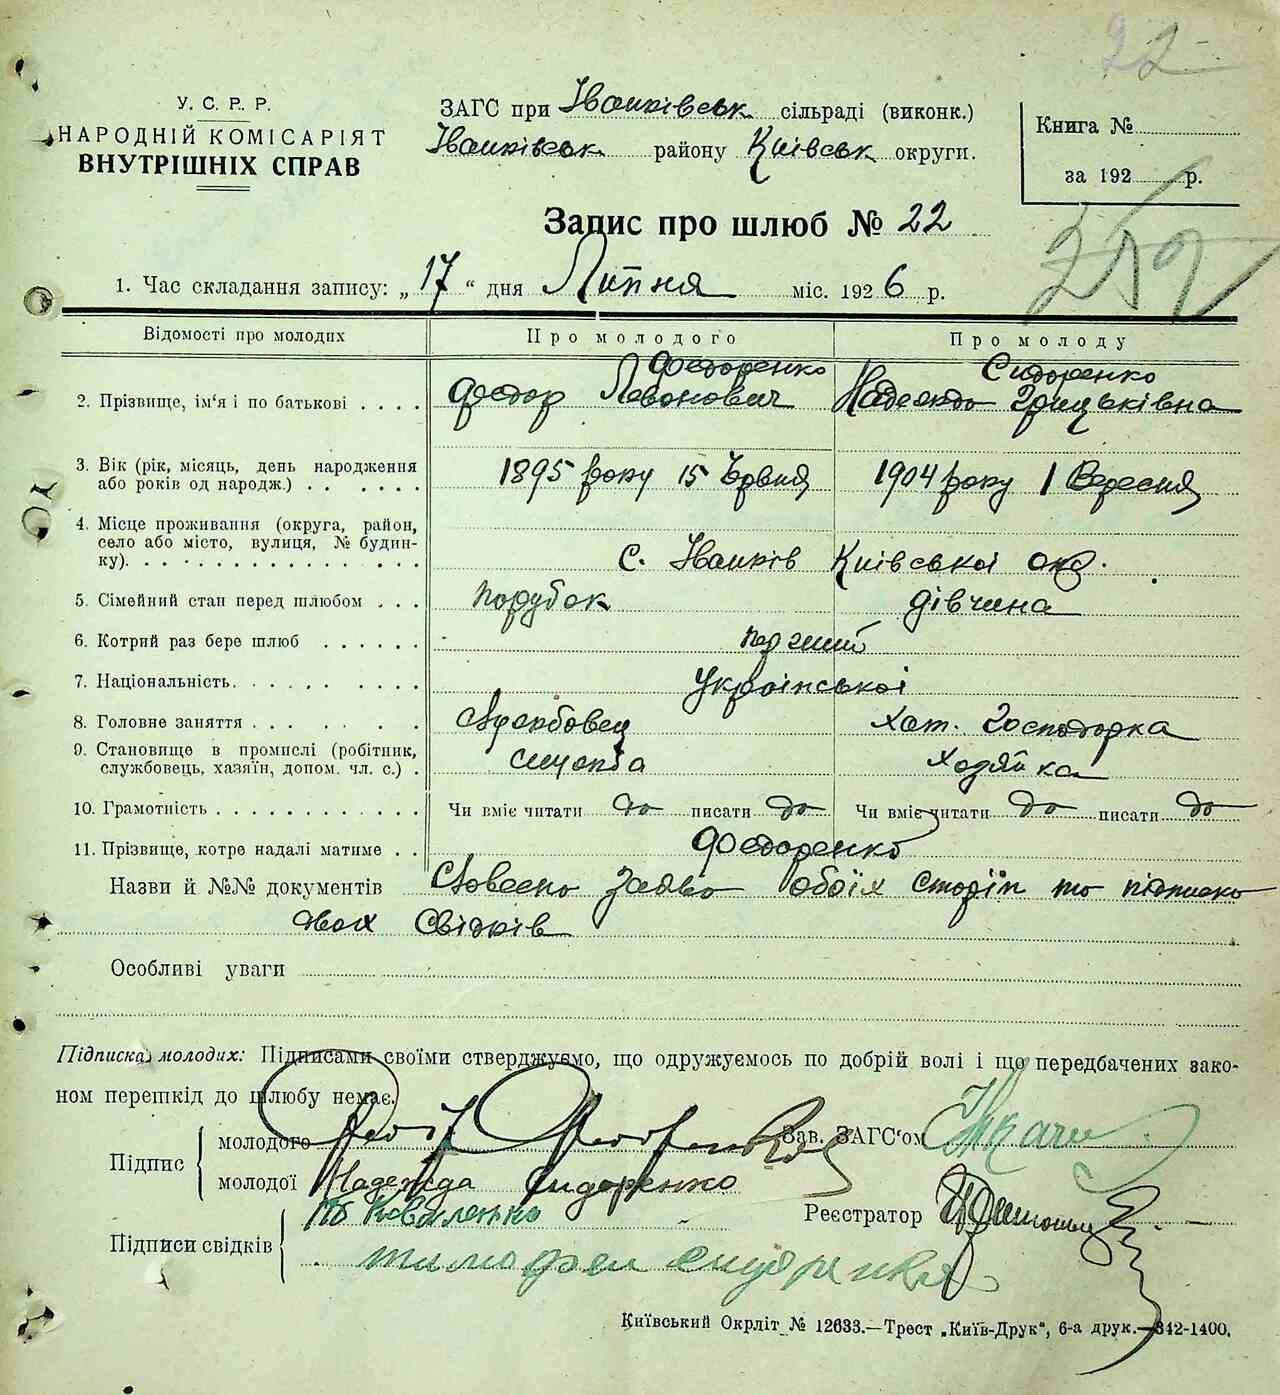 22
У. С. Р. Р.
НАРОДНІЙ КОМІСАРІЯТ
ВНУТРІШНІХ СПРАВ
ЗАГС при Іванківськ сільраді (виконк.)
Іванківськ району Київськ округи.
Книга №
за 192 р.
Запис про шлюб № 22
1. Час складання запису: „17“ дня Липня міс. 1926 р.
Відомості про молодих Про молодого Про молоду
Федоренко Сидоренко
2. Прізвище, ім'я і по батькові . . . . Федор Левонович Надежда Грицьківна
3. Вік (рік, місяць, день народження
або років од народж.) . . . . . . 1895 року 15 Червня 1904 року 1 Вересня
4. Місце проживання (округа, район,
село або місто, вулиця, № будин-
ку). . . . . . . . . . . . . . . с. Іванків Київської окр.
5. Сімейний стан перед шлюбом . . . Порубок дівчина
6. Котрий раз бере шлюб . . . . . . перший
7. Національність. . . . . . . . . . Української
8. Головне заняття . . . . . . . . Службовец хат. Господарка
9. Становище в промислі (робітник,
службовець, хазяїн, допом. чл. с.) . служба хазяйка
10. Грамотність . . . . . . . . . . . . Чи вміє читати да писати да Чи вміє читати да писати да
11. Прізвище, котре надалі матиме . . Федоренко
Назви й №№ документів Словесна заява обоїх сторін та підписка
двох Свідків
Особливі уваги
Підписка молодих: Підписами своїми стверджуємо, що одружуємось по добрій волі і що передбачених зако-
ном перешкід до шлюбу немає.
Підпис
молодого Федоренко Зав. ЗАГС'ом
молодої Надежда Сидоренко
Реєстратор
Підписи свідків
Коваленко
тимофей сидоренко
Київський Окрліт № 12633.—Трест „Київ-Друк“, 6-а друк.—342-1400.